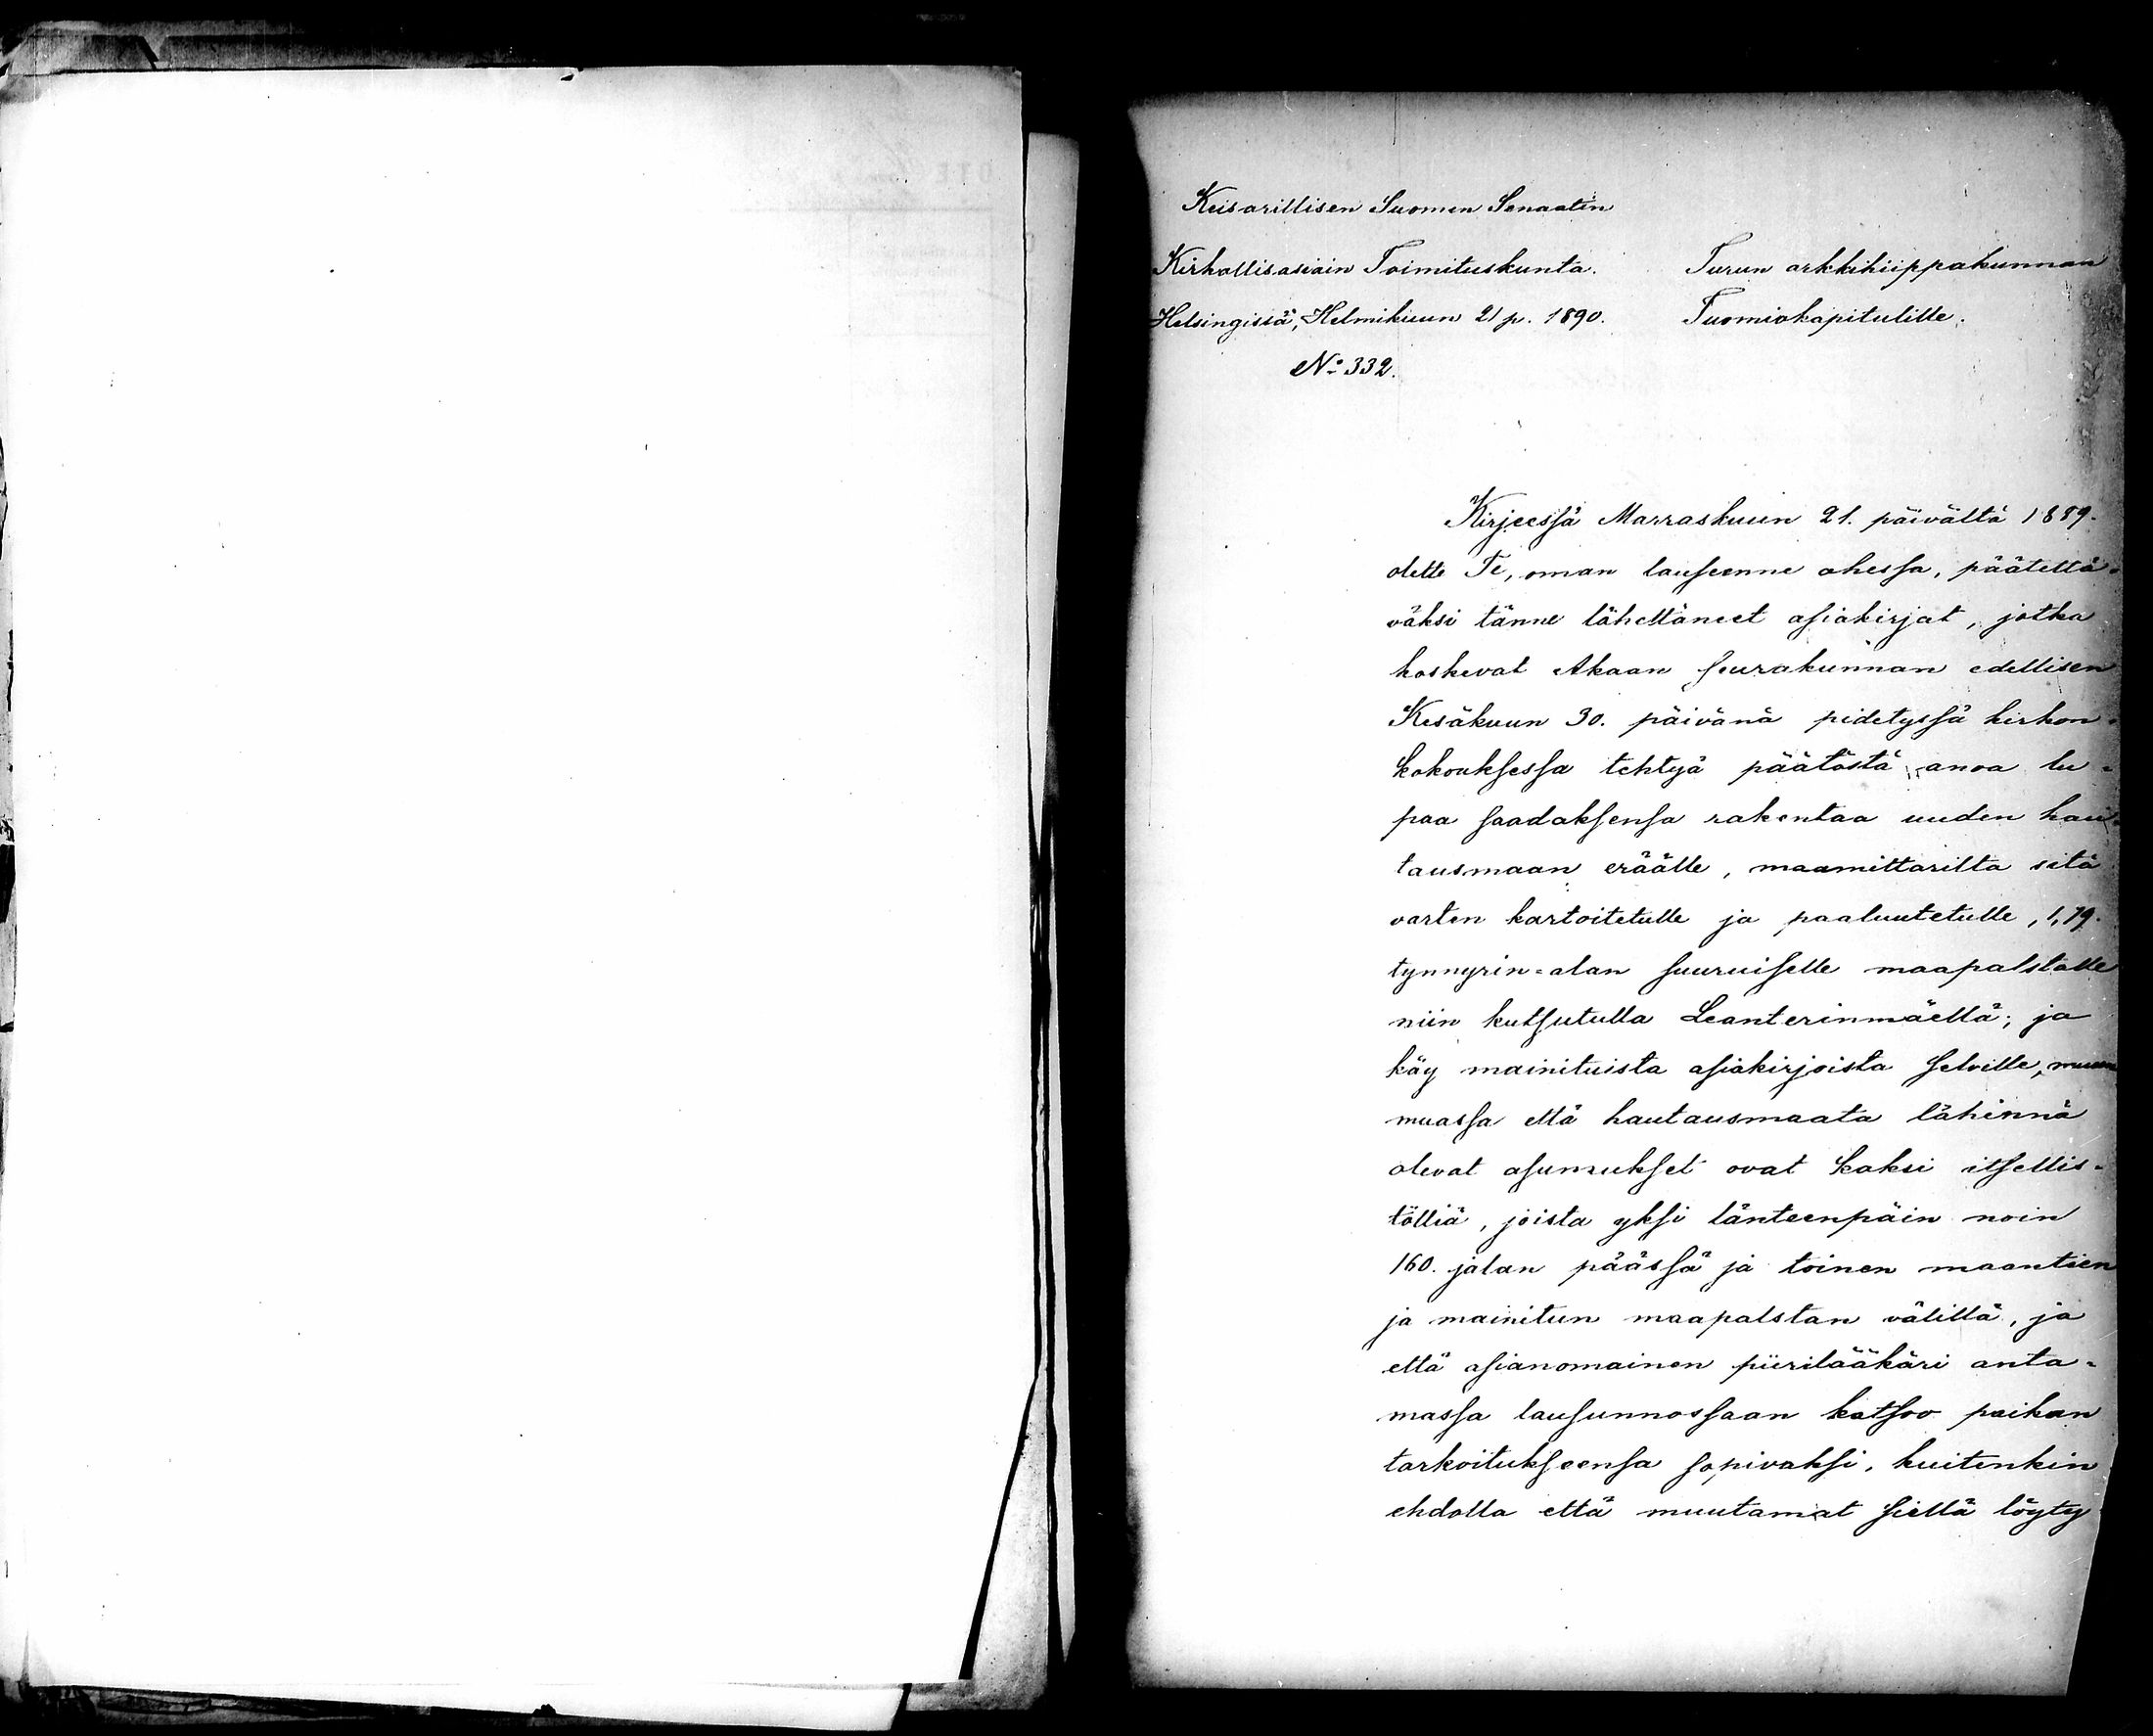 Keisarillisen Suomen Senaatin
Kirkollisasiain Toimituskunta.
Helsingissä, Helmikuun 21 p. 1890.
No 332.
Turun arkkihiippakunnan
Tuomiokapitulille.
Kirjeessä Marraskuun 21. päivältä 1889.
olette Te, oman lauseenne ohessa, päätettä=
väksi tänne lähettäneet asiakirjat, jotka
koskevat Akaan seurakunnan edellisen
Kesäkuun 30. päivänä pidetyssä kirkon=
kokouksessa tehtyä päätöstä anoa lu=
paa saadaksensa rakentaa uuden hau=
tausmaan eräälle, maamittarilta sitä
varten kartoitetulle ja paaluutetulle, 1,79.
tynnyrin=alan suuruiselle maapalstalle
niin kutsutulla Leanterinmäellä; ja
käy mainituista asiakirjoista selville, muun
muassa että hautausmaata lähinnä
olevat asumukset ovat kaksi itsellis=
tölliä, joista yksi länteenpäin noin
160. jalan päässä ja toinen maantien
ja mainitun maapalstan välillä, ja
että asianomainen piirilääkäri anta=
massa lausunnossaan katsoo paikan
tarkoitukseensa sopivaksi, kuitenkin
ehdolla että muutamat siellä löyty